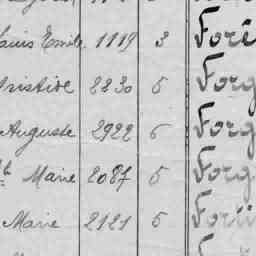 Louis Emile 1119 3 Forê
Aristide 2230 5 Forg
Auguste 2922 5 Forg
Marie 2087 5 Forg
Marie 2121 5